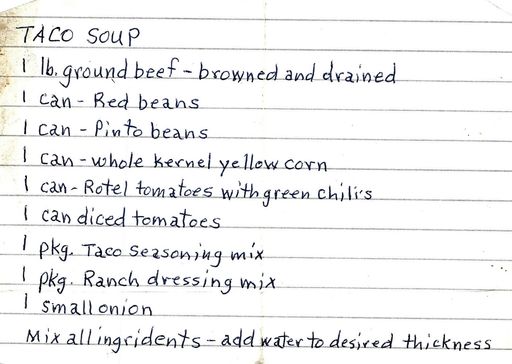 TACO SOUP
1 lb. ground beef - browned and drained
1 can - Red beans
1 can - Pinto beans
1 can - whole kernel yellow corn
1 can - Rotel tomatoes with green chili's
1 can diced tomatoes
1 pkg. Taco seasoning mix
1 pkg. Ranch dressing mix
1 small onion
Mix all ingridents - add water to desired thickness